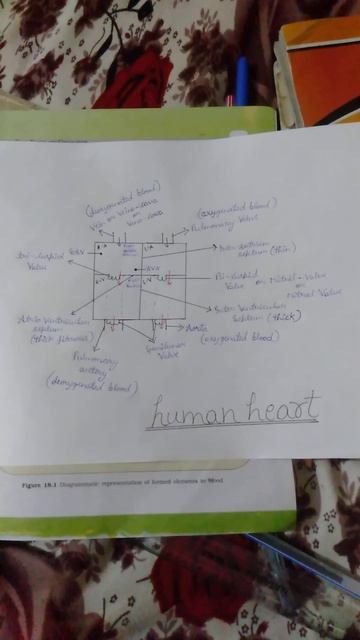 (deoxygenated blood)
or Vena-cava
or
Vena-cava
(oxygenated blood)
Pulmonary Vein
SAN
Tri-cuspid
Valve
R.A
L.A
Inter auricular
septum (thin)
AVN
R.V
L.V
Bi-cuspid
Valve or Mitral-valve
or
Mitral Valve
Inter Ventricular
Septum (thick)
Atrio ventricular
septum
(thick fibrous)
Aorta
(oxygenated blood)
Semilunar
Valve
Pulmonary
artery
(deoxygenated blood)
human heart
Figure 18.1 Diagrammatic representation of formed elements in blood